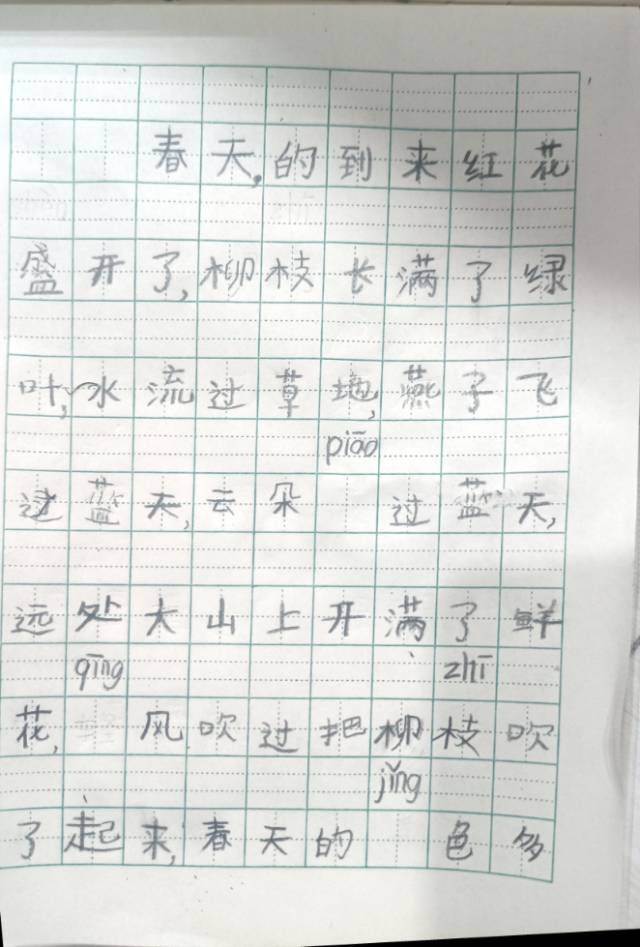 春天,的到来红花
盛开了,柳枝长满了绿
叶,水流过草地,燕子飞
piāo
过蓝天,云朵 过蓝天,
远处大山上开满了鲜
qīng zhī
花, 风吹过把柳枝吹
jǐng
了起来,春天的 色多